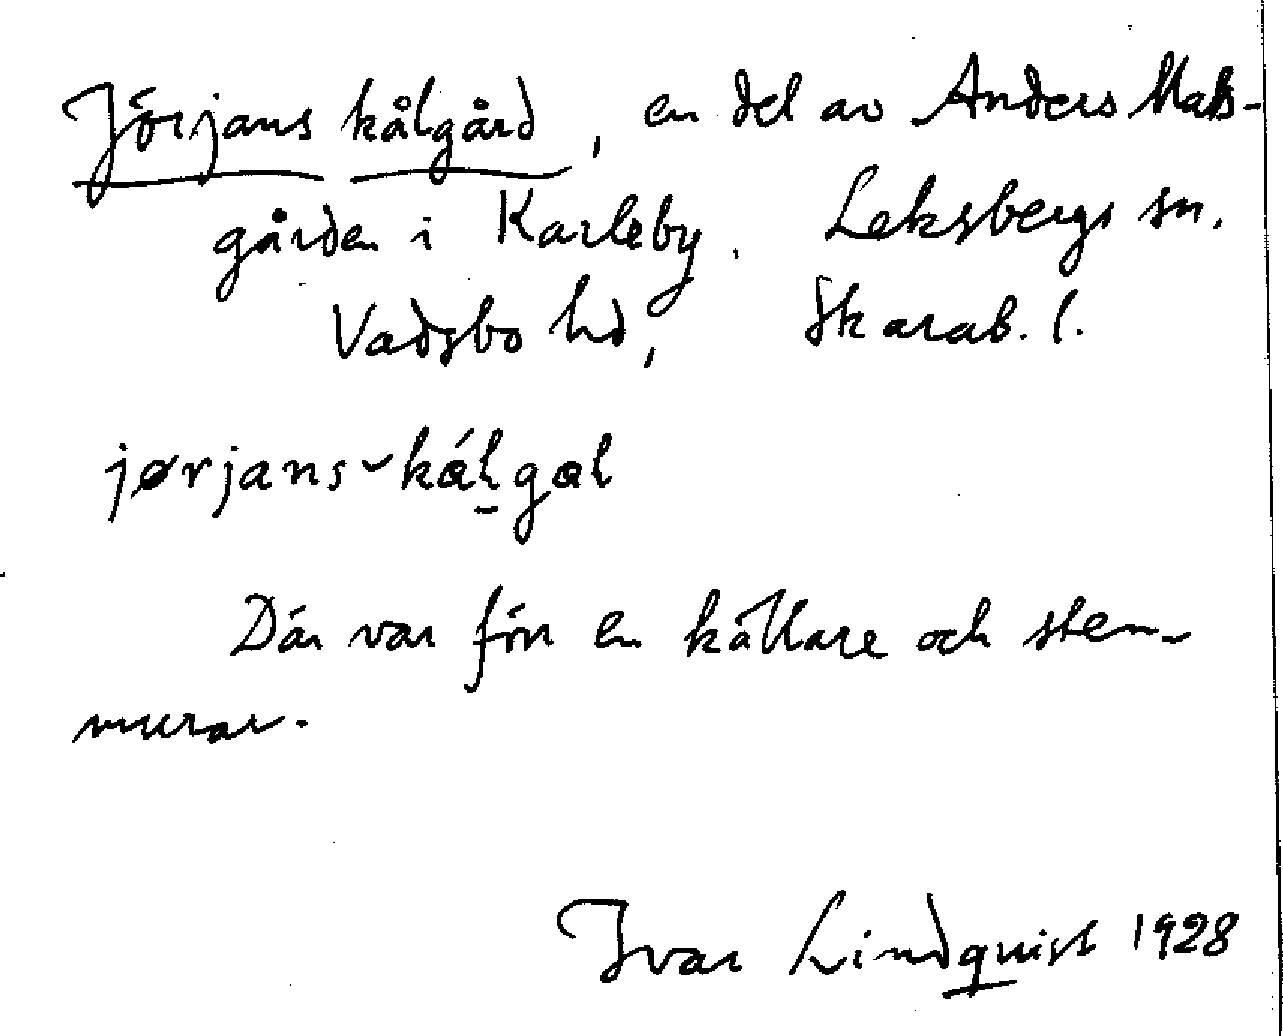 Jörjans kålgård, en del av Anders Mats-
gården i Karleby. Leksbergs sn.
Vadsbo hd, Skarab. l.
jørjans-kålgal
Där var förr en källare och sten-
murar.
Ivar Lindquist 1928